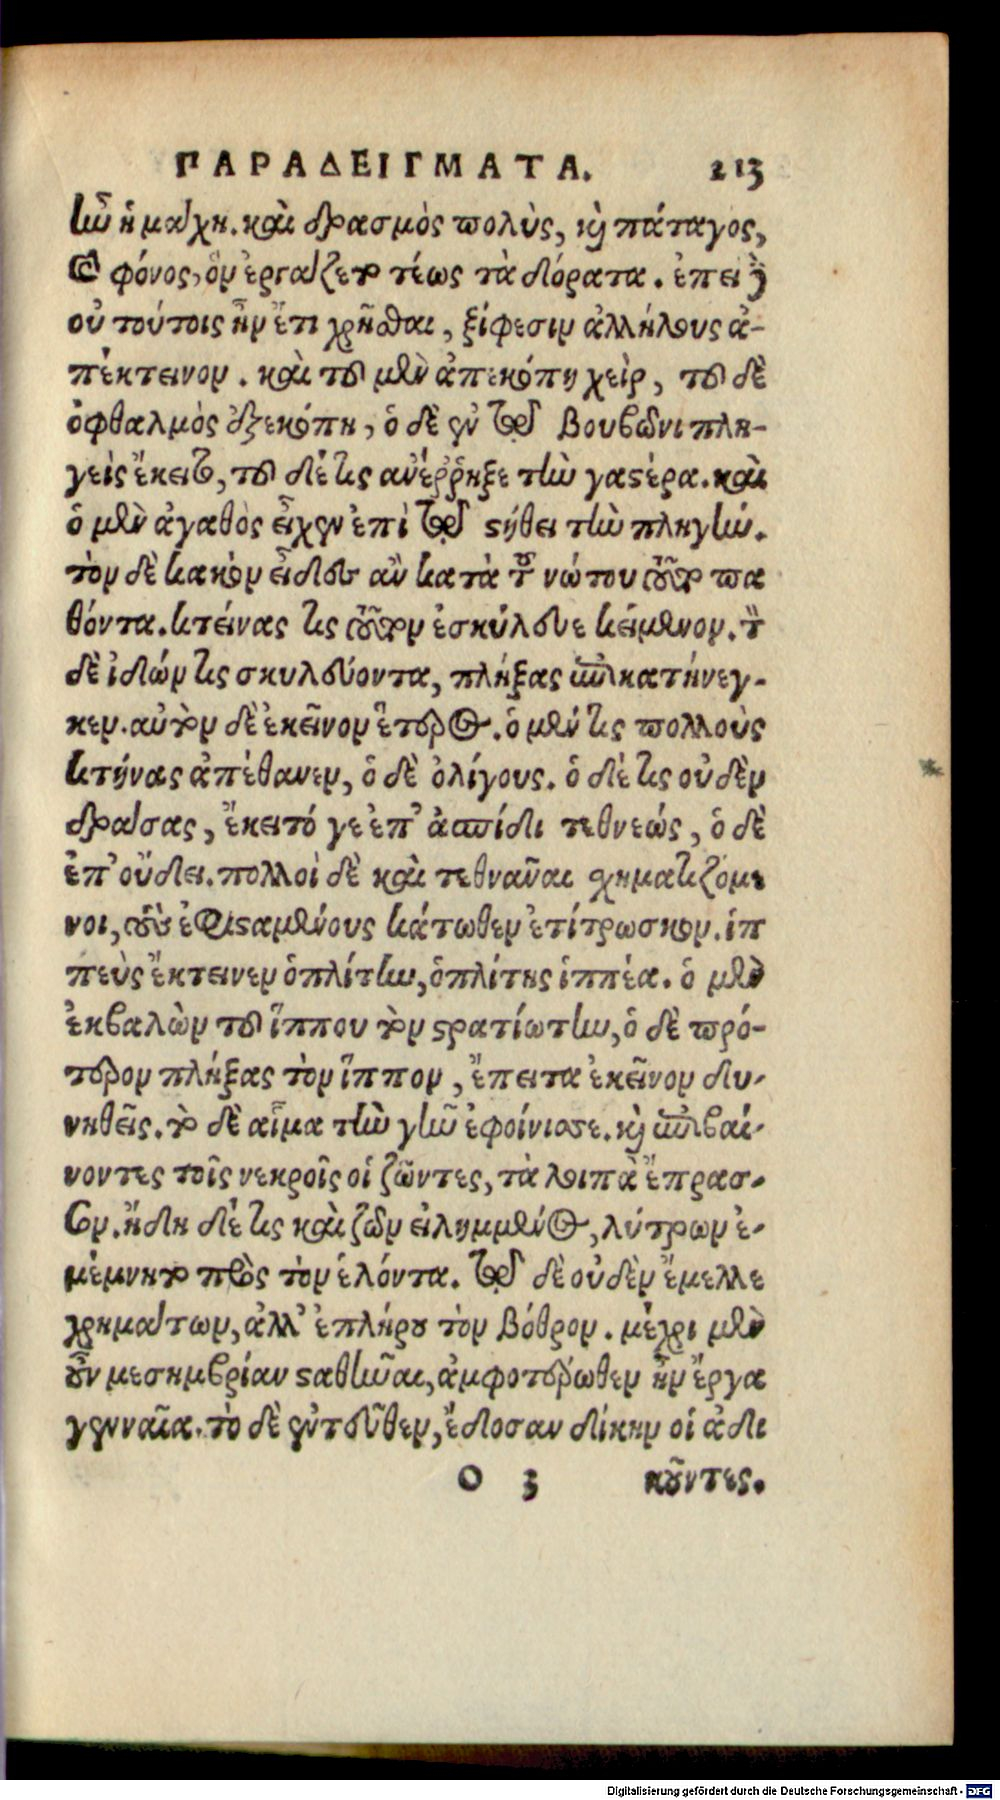 ΠΑΡΑΔΕΙΓΜΑΤΑ. 213
ἦν ἡ μάχη. καὶ δρασμὸς πολὺς, καὶ πάταγος,
καὶ φόνος, ὃν ἐργάζεται τέως τὰ δόρατα. ἐπεὶ δὲ
οὐ τούτοις ἦν ἔτι χρῆσθαι, ξίφεσιν ἀλλήλους ἀ-
πέκτεινον. καὶ τοῦ μὲν ἀπεκόπη χεὶρ, τοῦ δὲ
ὀφθαλμὸς ἐξεκόπη, ὁ δὲ ἐν τῷ βουβῶνι πλη-
γεὶς ἔκειτο, τοῦ δέ τις ἀνέῤῥηξε τὴν γαστέρα. καὶ
ὁ μὲν ἀγαθὸς εἶχεν ἐπὶ τῷ στήθει τὴν πληγὴν.
τὸν δὲ κακὸν εἶδες ἂν κατὰ τοῦ νώτου τοῦτο πα
θόντα. κτείνας τις τοῦτον ἐσκύλευε κείμενον. τὸν
δὲ ἰδών τις σκυλεύοντα, πλήξας ἐπικατήνεγ-
κεν. αὐτὸν δὲ ἐκεῖνον ἕτερος. ὁ μέν τις πολλοὺς
κτήνας ἀπέθανεν, ὁ δὲ ὀλίγους. ὁ δέ τις οὐδὲν
δράσας, ἔκειτό γε ἐπ' ἀσπίδι τεθνεώς, ὁ δὲ
ἐπ' οὔδει. πολλοὶ δὲ καὶ τεθνᾶναι σχηματιζόμε
νοι, τοὺς ἐφισταμένους κάτωθεν ἐτίτρωσκον. ἱπ
πεὺς ἔκτεινεν ὁπλίτην, ὁπλίτης ἱππέα. ὁ μὲν
ἐκβαλὼν τοῦ ἵππου τὸν στρατίωτην, ὁ δὲ πρό-
τερον πλήξας τὸν ἵππον, ἔπειτα ἐκεῖνον δυ-
νηθεῖς. τὸ δὲ αἷμα τὴν γῆν ἐφοίνισσε. καὶ ἐπιβαί-
νοντες τοῖς νεκροῖς οἱ ζῶντες, τὰ λοιπὰ ἔπρασ-
σον. ἤδη δέ τις καὶ ζῶν εἰλημμένος, λύτρων ἐ-
μέμνητο πρὸς τὸν ἑλόντα. τῷ δὲ οὐδὲν ἔμελλε
χρημάτων, ἀλλ' ἐπλήρου τὸν βόθρον. μέχρι μὲν
οὖν μεσημβρίαν σταθῆναι, ἀμφοτέρωθεν ἦν ἔργα
γενναῖα. τὸ δὲ ἐντεῦθεν, ἔδοσαν δίκην οἱ ἀδι
O 3 κοῦντες.
Digitalisierung gefördert durch die Deutsche Forschungsgemeinschaft - DFG